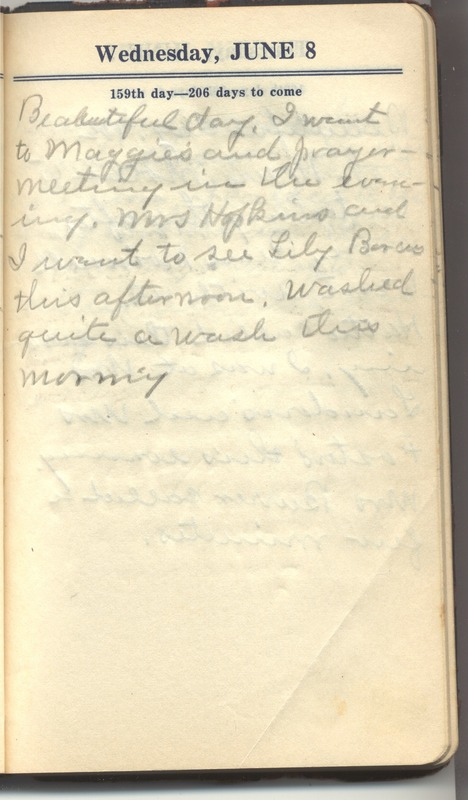 Wednesday, JUNE 8
159th day—206 days to come
Beabuteful day. I want
to Maggies and prayer-
meeting in the even-
ing. Mrs Hopkins and
I want to see Lily
this afternoon. Washed
quite a wash this
morning